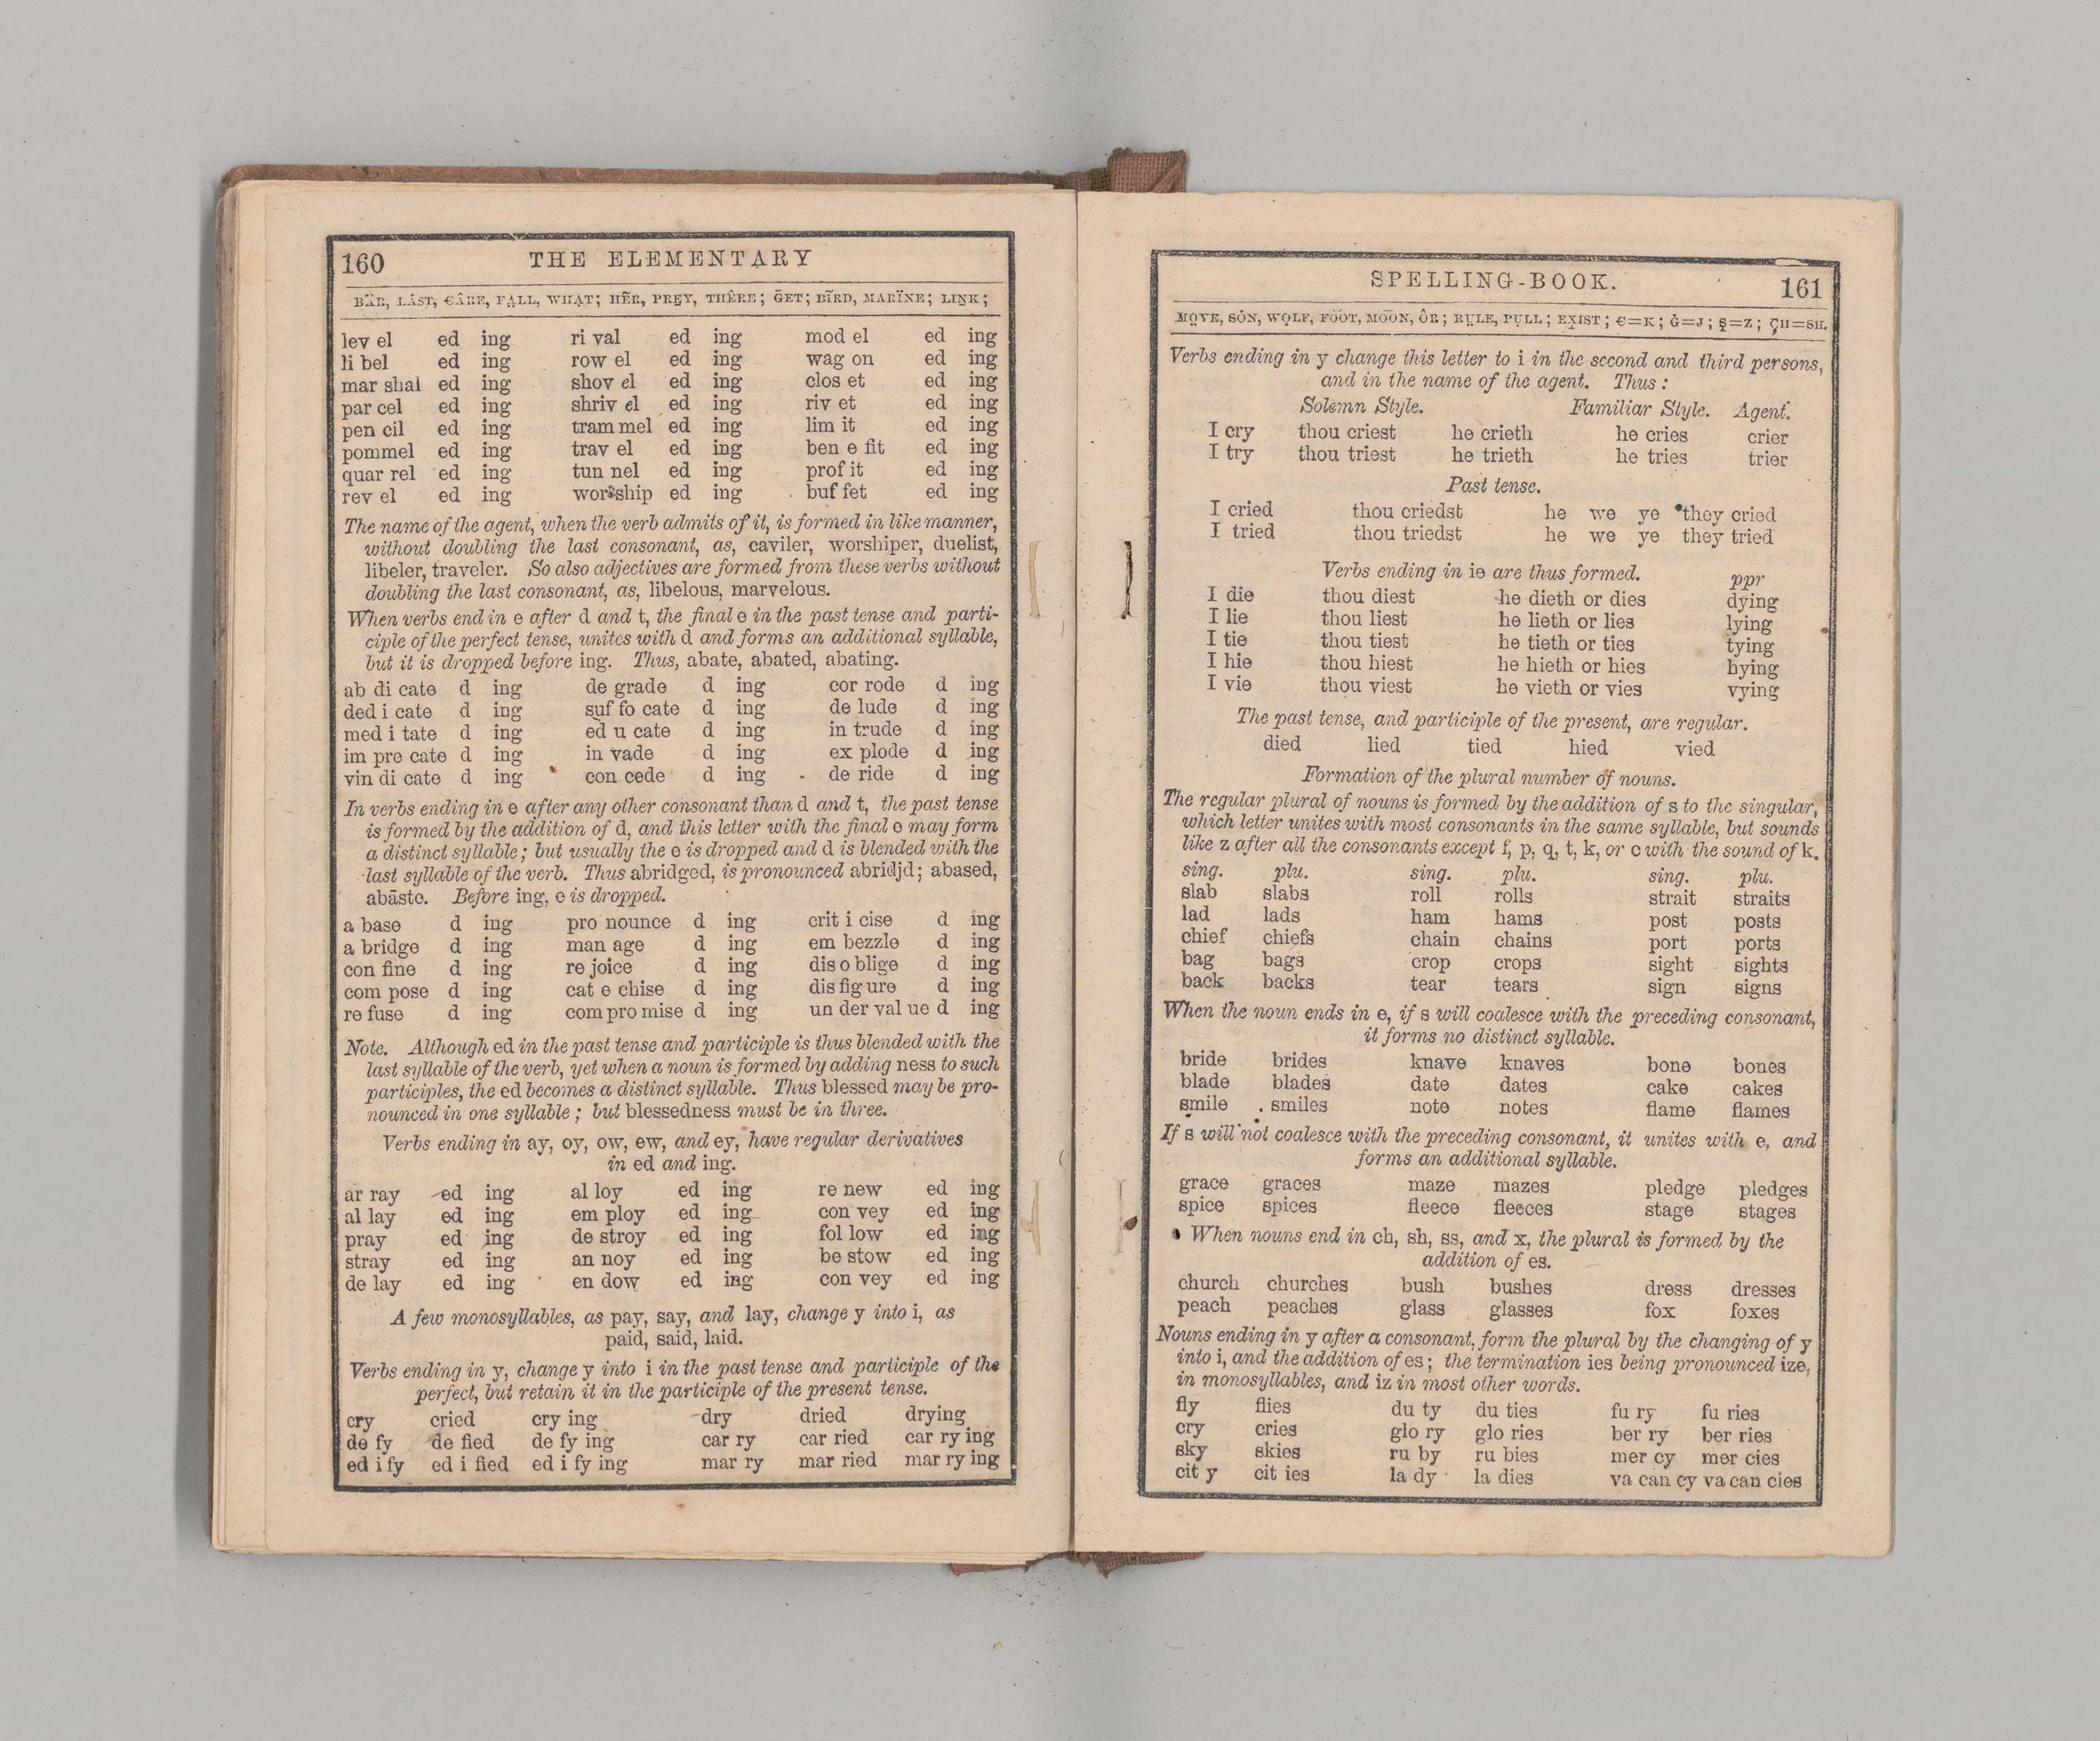 160 THE ELEMENTARY
BÄR, LÁST, ЄÂRE, FẠLL, WHẠT; HẼR, PRE̱Y, THÊRE; ḠET; BĨRD, MARÏNE; LIN̲K;
lev el ed ing ri val ed ing mod el ed ing
li bel ed ing row el ed ing wag on ed ing
mar shal ed ing shov el ed ing clos et ed ing
par cel ed ing shriv el ed ing riv et ed ing
pen cil ed ing tram mel ed ing lim it ed ing
pommel ed ing trav el ed ing ben e fit ed ing
quar rel ed ing tun nel ed ing prof it ed ing
rev el ed ing worship ed ing buf fet ed ing
The name of the agent, when the verb admits of it, is formed in like manner,
without doubling the last consonant, as, caviler, worshiper, duelist,
libeler, traveler. So also adjectives are formed from these verbs without
doubling the last consonant, as, libelous, marvelous.
When verbs end in e after d and t, the final e in the past tense and parti-
ciple of the perfect tense, unites with d and forms an additional syllable,
but it is dropped before ing. Thus, abate, abated, abating.
ab di cate d ing de grade d ing cor rode d ing
ded i cate d ing suf fo cate d ing de lude d ing
med i tate d ing ed u cate d ing in trude d ing
im pre cate d ing in vade d ing ex plode d ing
vin di cate d ing con cede d ing de ride d ing
In verbs ending in e after any other consonant than d and t, the past tense
is formed by the addition of d, and this letter with the final e may form
a distinct syllable; but usually the e is dropped and d is blended with the
last syllable of the verb. Thus abridged, is pronounced abridjd; abased,
abāste. Before ing, e is dropped.
a base d ing pro nounce d ing crit i cise d ing
a bridge d ing man age d ing em bezzle d ing
con fine d ing re joice d ing dis o blige d ing
com pose d ing cat e chise d ing dis fig ure d ing
re fuse d ing com pro mise d ing un der val ue d ing
Note. Although ed in the past tense and participle is thus blended with the
last syllable of the verb, yet when a noun is formed by adding ness to such
participles, the ed becomes a distinct syllable. Thus blessed may be pro-
nounced in one syllable; but blessedness must be in three.
Verbs ending in ay, oy, ow, ew, and ey, have regular derivatives
in ed and ing.
ar ray ed ing al loy ed ing re new ed ing
al lay ed ing em ploy ed ing con vey ed ing
pray ed ing de stroy ed ing fol low ed ing
stray ed ing an noy ed ing be stow ed ing
de lay ed ing en dow ed ing con vey ed ing
A few monosyllables, as pay, say, and lay, change y into i, as
paid, said, laid.
Verbs ending in y, change y into i in the past tense and participle of the
perfect, but retain it in the participle of the present tense.
cry cried cry ing dry dried drying
de fy de fied de fy ing car ry car ried car ry ing
ed i fy ed i fied ed i fy ing mar ry mar ried mar ry ing
SPELLING-BOOK. 161
MO̤VE, SȮN, WO̤LF, FO͝OT, MO͞ON, ÔR; RṲLE, PṲLL; EX̱IST; Є=K; Ġ=J; S̱=Z; ÇH=SH.
Verbs ending in y change this letter to i in the second and third persons,
and in the name of the agent. Thus:
Solemn Style. Familiar Style. Agent.
I cry thou criest he crieth he cries crier
I try thou triest he trieth he tries trier
Past tense.
I cried thou criedst he we ye they cried
I tried thou triedst he we ye they tried
Verbs ending in ie are thus formed. ppr
I die thou diest he dieth or dies dying
I lie thou liest he lieth or lies lying
I tie thou tiest he tieth or ties tying
I hie thou hiest he hieth or hies hying
I vie thou viest he vieth or vies vying
The past tense, and participle of the present, are regular.
died lied tied hied vied
Formation of the plural number of nouns.
The regular plural of nouns is formed by the addition of s to the singular,
which letter unites with most consonants in the same syllable, but sounds
like z after all the consonants except f, p, q, t, k, or c with the sound of k.
sing. plu. sing. plu. sing. plu.
slab slabs roll rolls strait straits
lad lads ham hams post posts
chief chiefs chain chains port ports
bag bags crop crops sight sights
back backs tear tears sign signs
When the noun ends in e, if s will coalesce with the preceding consonant,
it forms no distinct syllable.
bride brides knave knaves bone bones
blade blades date dates cake cakes
smile smiles note notes flame flames
If s will not coalesce with the preceding consonant, it unites with e, and
forms an additional syllable.
grace graces maze mazes pledge pledges
spice spices fleece fleeces stage stages
When nouns end in ch, sh, ss, and x, the plural is formed by the
addition of es.
church churches bush bushes dress dresses
peach peaches glass glasses fox foxes
Nouns ending in y after a consonant, form the plural by the changing of y
into i, and the addition of es; the termination ies being pronounced ize,
in monosyllables, and iz in most other words.
fly flies du ty du ties fu ry fu ries
cry cries glo ry glo ries ber ry ber ries
sky skies ru by ru bies mer cy mer cies
cit y cit ies la dy la dies va can cy va can cies